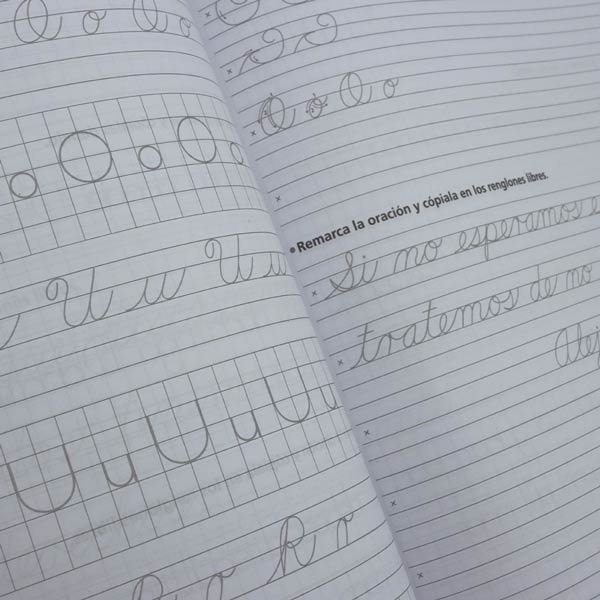 O o O o
o O o O o
U u U u
U u U u U u
R r
O o O o
• Remarca la oración y cópiala en los renglones libres.
Si no esperamos
tratemos de no